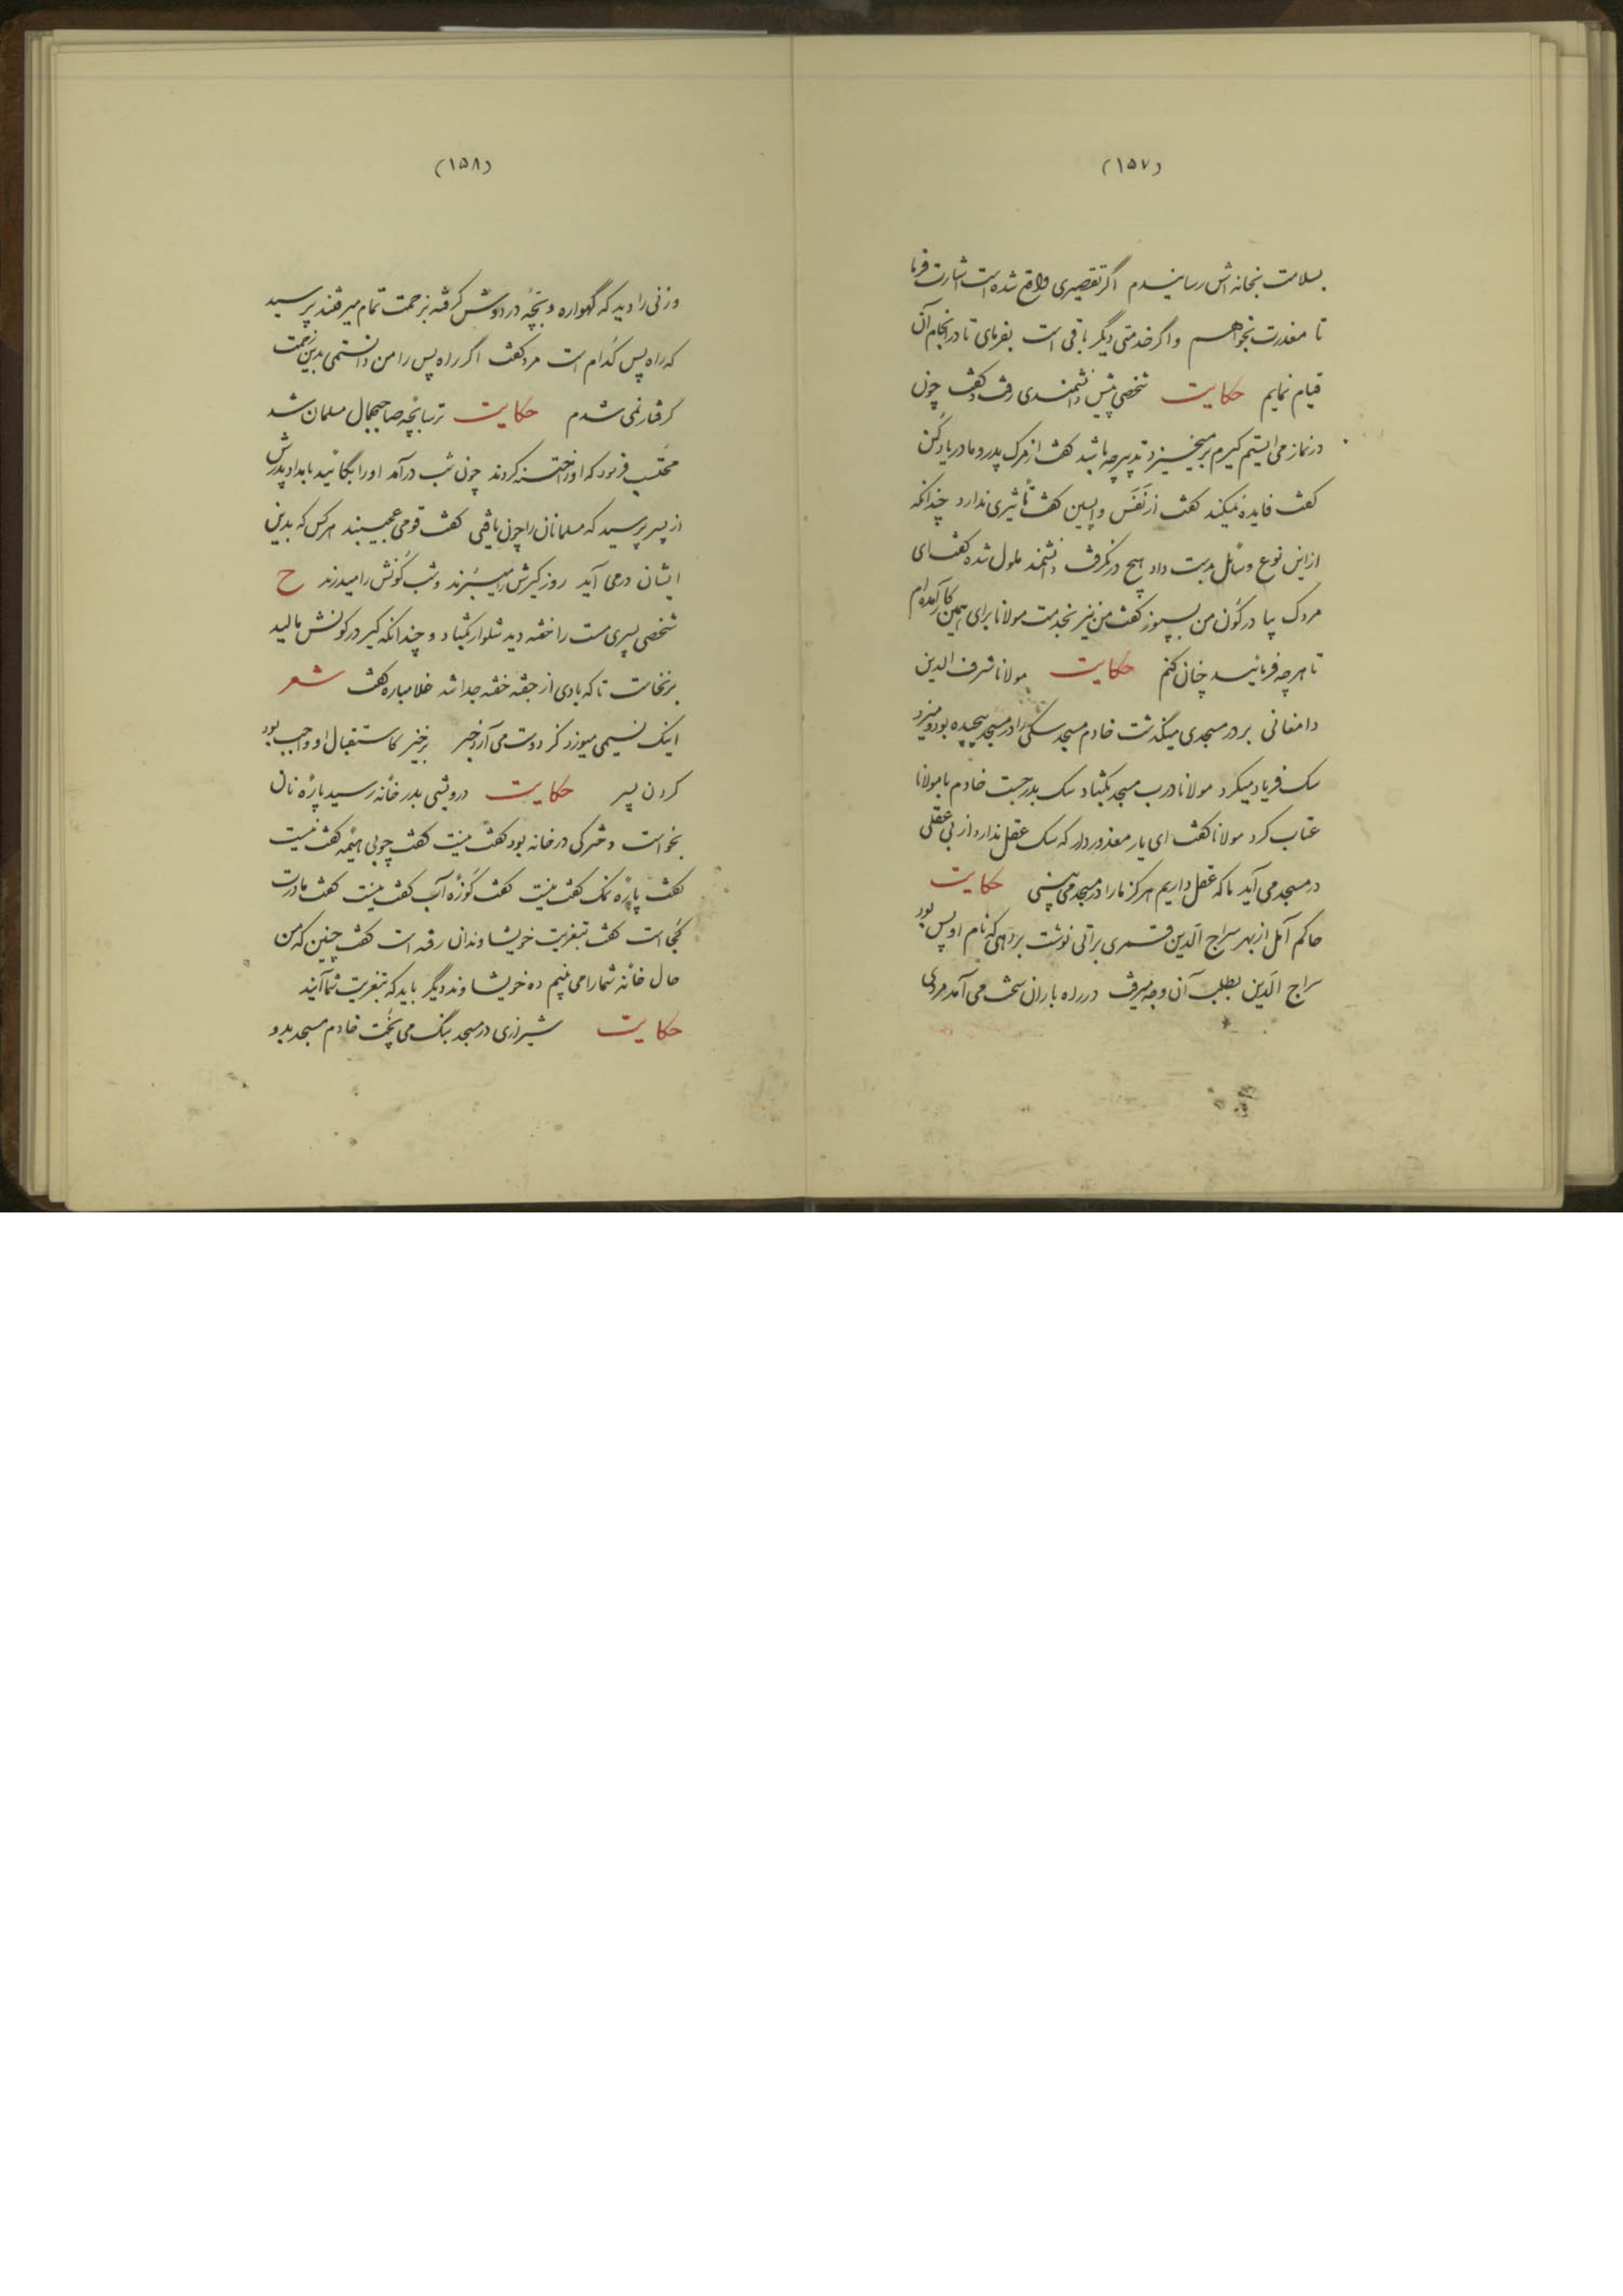 (۱۵۷)
بسلامت بخانه اش رسانیدم اگر تقصیری واقع شده است اشارت فرما
تا معذرت بخواهم و اگر خدمتی دیگر باقی است بفرمای تا در انجام آن
قیام نمایم حکایت شخصی پیش دانشمندی رفت و گفت چون
در نماز می ایستم کیرم بر میخیزد تدبیر چه باشد گفت از مرک پدر و مادر یاد کن
گفت فایده نمیکند گفت از نَفَس واپسین گفت تأثیری ندارد چندانکه
از این نوع وسائل بدست داد هیچ در نگرفت دانشمند ملول شده گفت ای
مردک بیا در کون من بسپوز گفت من نیز بخدمت مولانا برای همین کار آمده ام
تا هر چه فرمائید چنان کنم حکایت مولانا شرف الدین
دامغانی بر در مسجدی میگذشت خادم مسجد سگی را در مسجد پیچیده بود و میزد
سک فریاد میکرد مولانا درب مسجد بگشاد سک بدر جست خادم با مولانا
عتاب کرد مولانا گفت ای یار معذور دار که سک عقل ندارد از بی عقلی
در مسجد می آید ما که عقل داریم هرگز ما را در مسجد می بینی حکایت
حاکم آمل از بهر سراج الدین قمری براتی نوشت بر دهی که نام او پس بود
سراج الدین بطلب آن وجه میرفت در راه باران سخت می آمد مردی
(۱۵۸)
و زنی را دید که گهواره و بچهٔ در دوش گرفته بزحمت تمام میرفتند پرسید
که راه پس کدام است مرد گفت اگر راه پس را من دانستمی بدین زحمت
گرفتار نمی شدم حکایت ترسابچهٔ صاحبجمال مسلمان شد
محتسب فرمود که او را ختنه کردند چون شب درآمد او را بگائید بامداد پدرش
از پسر پرسید که مسلمانان را چون یافتی گفت قومی عجیبند هر کس که بدین
ایشان در می آید روز کیرش را میبُرند و شب کونش را میدرند ح
شخصی پسری مست را خفته دید شلوار بگشاد و چندانکه کیر در کونش مالید
برنخاست تا که بادی از خفته جدا شد غلامباره گفت شعر
اینک نسیمی میوزد کز دوست می آرد خبر برخیز کاستقبال او واجب بود
کردن پسر حکایت درویشی بدر خانهٔ رسید پارهٔ نان
بخواست دخترکی در خانه بود گفت نیست گفت چوبی هیمه گفت نیست
گفت پارهٔ نمک گفت نیست گفت کوزهٔ آب گفت نیست گفت مادرت
کجا است گفت بتعزیت خویشاوندان رفته است گفت چنین که من
حال خانهٔ شما را می بینم ده خویشاوند دیگر باید که بتعزیت شما آیند
حکایت شیرازی در مسجد بنگ می پخت خادم مسجد بدو